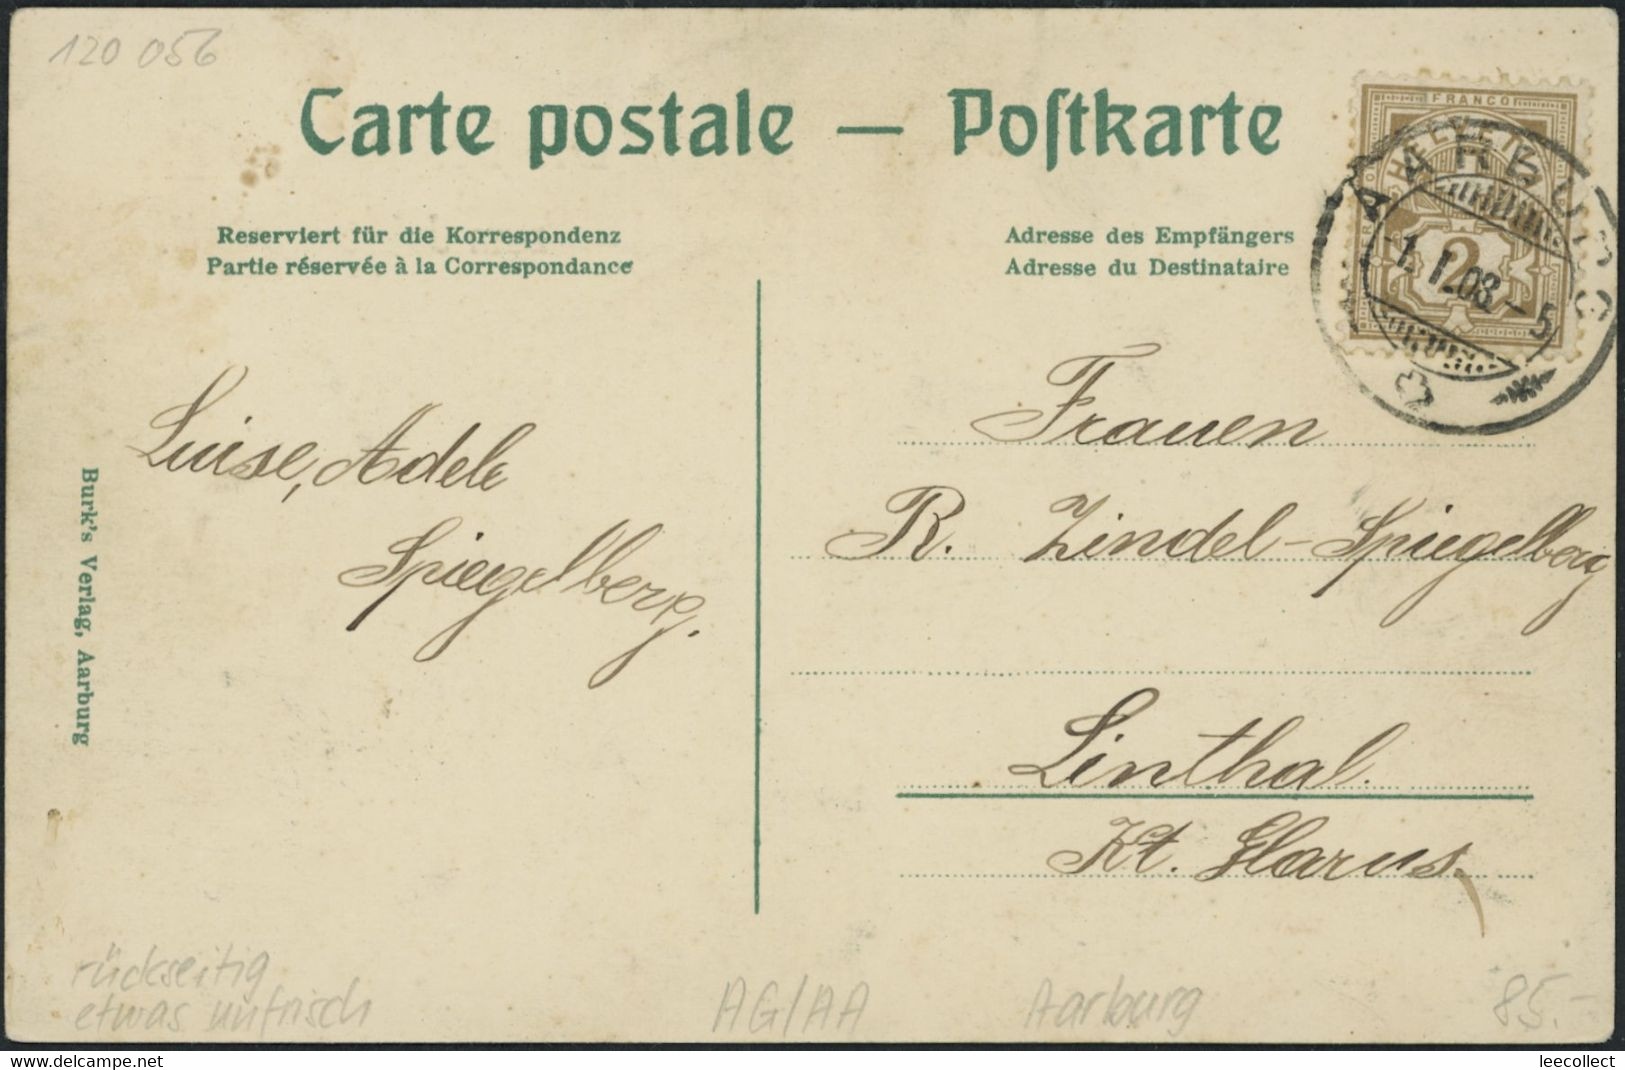 120 056
Carte postale — Poſtkarte
FRANCO
HELVETIA
AARBURG
-1. I. 08. - 5
2
Reserviert für die Korrespondenz
Partie réservée à la Correspondance
Adresse des Empfängers
Adresse du Destinataire
Luise, Adele
Spiegelberg.
Frauen
R. Zindel-Spiegelberg
Linthal.
Kt. Glarus.
Burk's Verlag, Aarburg
rückseitig
etwas unfrisch
AG/AA
Aarburg
85.-
www.delcampe.net
leecollect